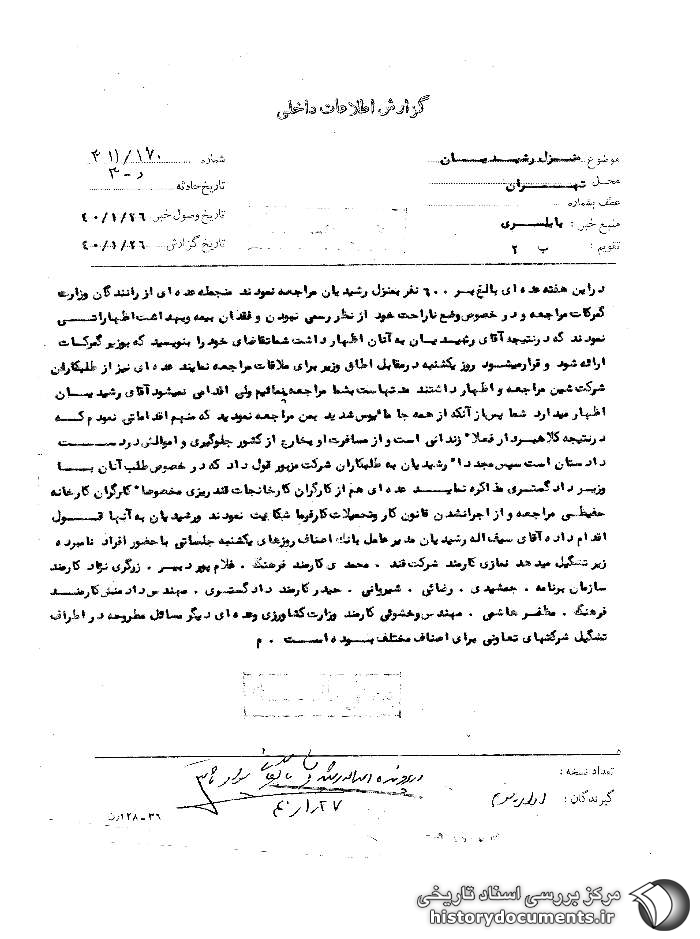 گزارش اطلاعات داخلی
موضوع: منزل رشیدیان
شماره ۳۱۱/۱۷۰
د - ۳
محل: تهران
تاریخ حادثه
عطف بشماره
تاریخ وصول خبر ۴۰/۱/۲۶
منبع خبر: بابلسری
تاریخ گزارش ۴۰/۱/۲۶
تقویم: ب ۲
در این هفته عده ای بالغ بر ۶۰۰ نفر بمنزل رشیدیان مراجعه نمودند منجمله عده ای از رانندگان وزارت
گمرکات مراجعه و در خصوص وضع ناراحت خود از نظر رسمی نبودن و فقدان بیمه و بهداشت اظهاراتی
نمودند که در نتیجه آقای رشیدیان به آنان اظهار داشت شما تقاضای خود را بنویسید که بوزیر گمرکات
ارائه شود و قرار میشود روز یکشنبه در مقابل اطاق وزیر برای ملاقات مراجعه نمایند عده ای نیز از طلبکاران
شرکت شین مراجعه و اظهار داشتند مدتهاست بشما مراجعه مینمائیم ولی اقدامی نمیشود آقای رشیدیان
اظهار میدارد شما پس از آنکه از همه جا مایوس شدید بمن مراجعه نمودید که منهم اقداماتی نمودم که
در نتیجه کلاهبردار فعلا" زندانی است و از مسافرت او بخارج از کشور جلوگیری و اموالش در دست
دادستان است سپس مجددا" رشیدیان به طلبکاران شرکت مزبور قول داد که در خصوص طلب آنان با
وزیر دادگستری مذاکره نماید عده ای هم از کارگران کارخانجات قندریزی مخصوصا" کارگران کارخانه
حفیظی مراجعه و از اجرا نشدن قانون کار و تحمیلات کارفرما شکایت نمودند و رشیدیان به آنها قول
اقدام داده آقای سیف اله رشیدیان مدیر عامل بانک اصناف روزهای یکشنبه جلساتی با حضور افراد نامبرده
زیر تشکیل میدهد نمازی کارمند شرکت قند . محمدی کارمند فرهنگ . غلام پور دبیر . زرگری نژاد کارمند
سازمان برنامه . جمشیدی . رضائی . شیروانی . حیدر کارمند دادگستری . مهندس دادمنش کارمند
فرهنگ . مظفر هاشمی . مهندس وخشوئی کارمند وزارت کشاورزی وعده ای دیگر مسائل مطروحه در اطراف
تشکیل شرکتهای تعاونی برای اصناف مختلف بوده است . م
تعداد نسخه:
گیرندگان:
۳۶-۱۲۸ رن
مرکز بررسی اسناد تاریخی
historydocuments.ir